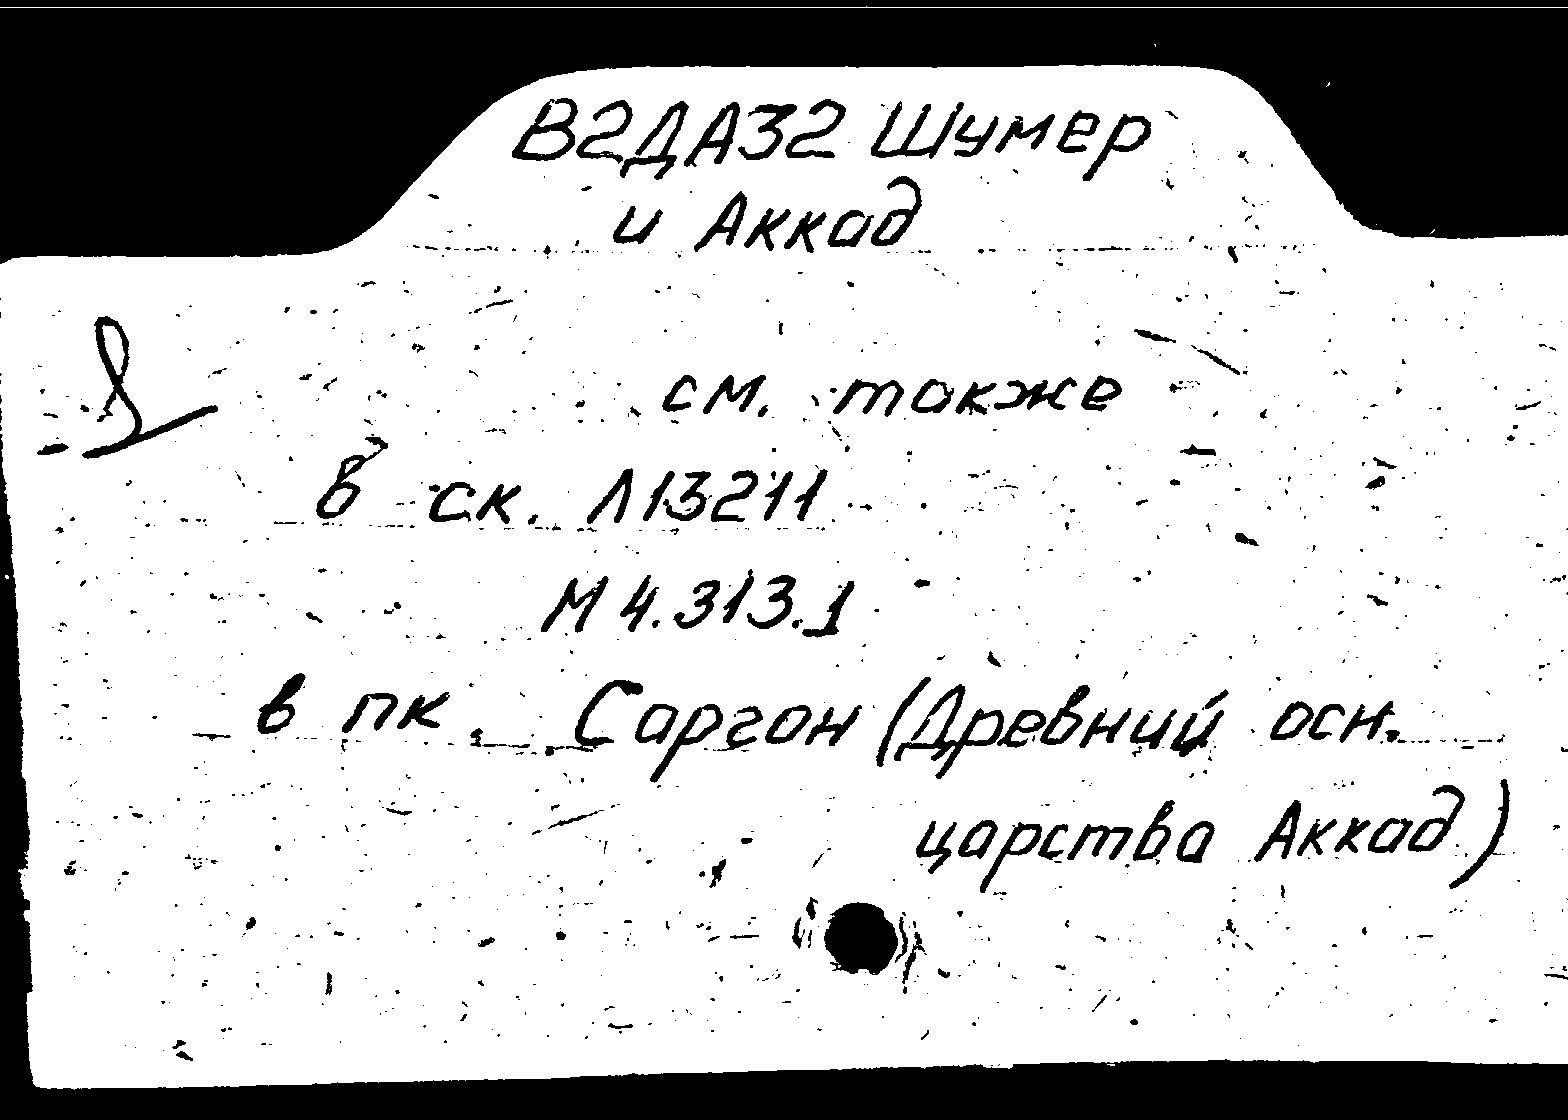 В2ДА32 Шумер
и Аккад
см. также
в ск. Л13211
М4.313.1
в пк. Саргон (Древний осн.
царства Аккад)